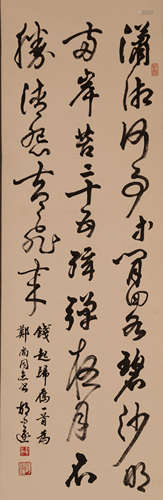 瀟湘何事等閒回水碧沙明
兩岸苔二十五弦彈夜月不
勝清怨卻飛來
錢起歸雁一首為
鄭尚同志